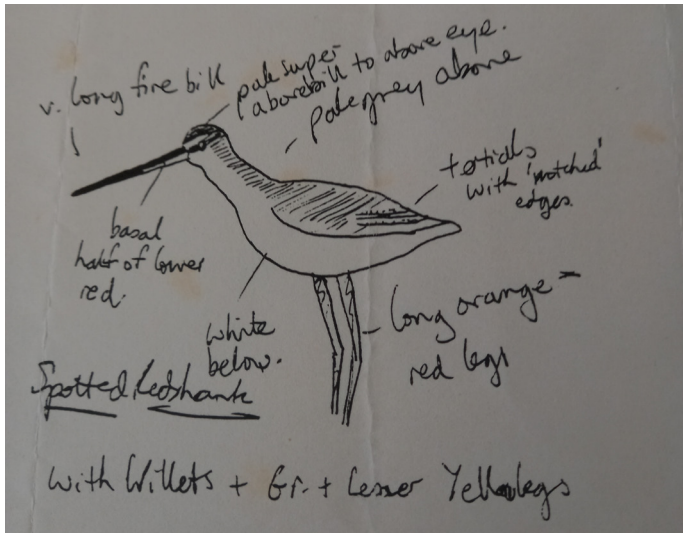 v. long fine bill
pale super
above bill to above eye.
pale grey above
tertials
with 'notched'
edges.
basal
half of lower
red.
white
below.
long orange-
red legs
Spotted Redshank
with Willets + Gr. + Lesser Yellowlegs